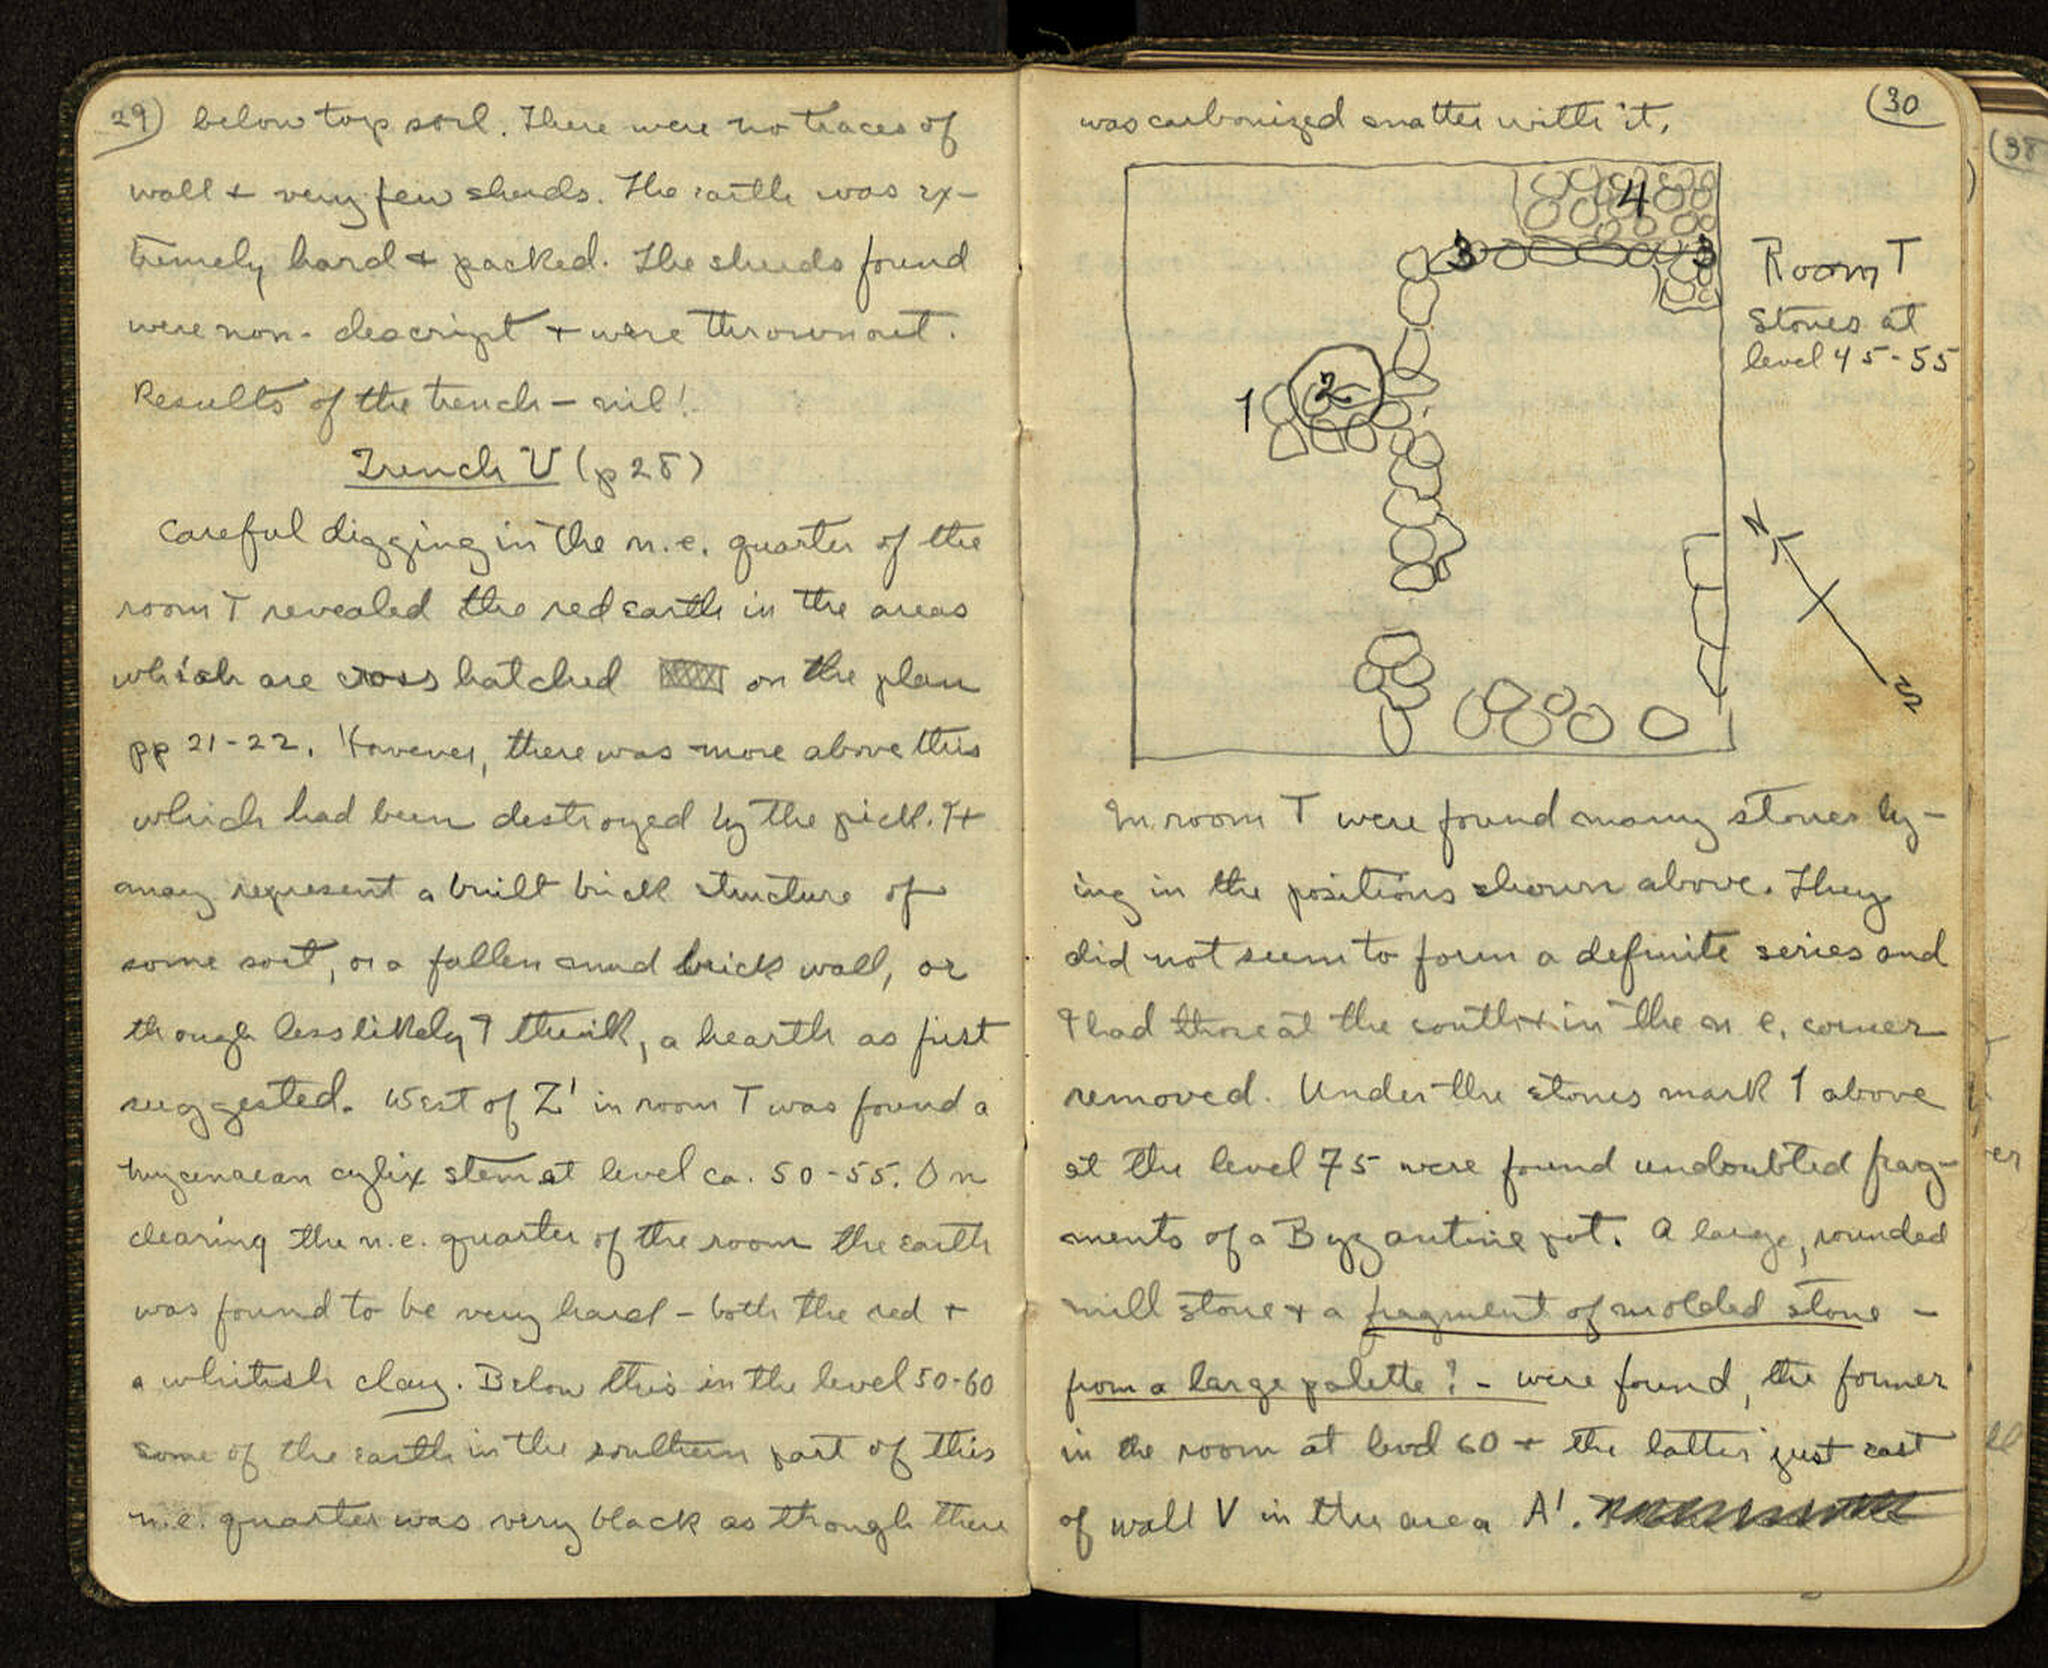 29) below top soil. There were no traces of
wall + very few sherds. The earth was ex-
tremely hard + packed. The sherds found
were non-descript + were thrown out.
Results of the trench - nil!
Trench V (p 28)
Careful digging in the n.e. quarter of the
room T revealed the red earth in the areas
which are cross hatched on the plan
pp 21-22. However, there was more above this
which had been destroyed by the pick. It
may represent a built brick structure of
some sort, or a fallen mud brick wall, or
though less likely I think, a hearth as first
suggested. West of Z' in room T was found a
Mycenaean cylix stem at level ca. 50-55. On
clearing the n.e. quarter of the room the earth
was found to be very hard - both the red +
a whitish clay. Below this in the level 50-60
some of the earth in the southern part of this
n.e. quarter was very black as though there
(30
was carbonized matter with it.
4
3 3
Room T
Stones at
level 45-55
1 2
N
S
In room T were found many stones ly-
ing in the positions shown above. They
did not seem to form a definite series and
I had those at the south + in the n.e. corner
removed. Under the stones mark 1 above
at the level 75 were found undoubted frag-
ments of a Byzantine pot. A large, rounded
mill stone + a fragment of molded stone -
from a large palette? - were found, the former
in the room at level 60 + the latter just east
of wall V in the area A'.
(38
er
ll